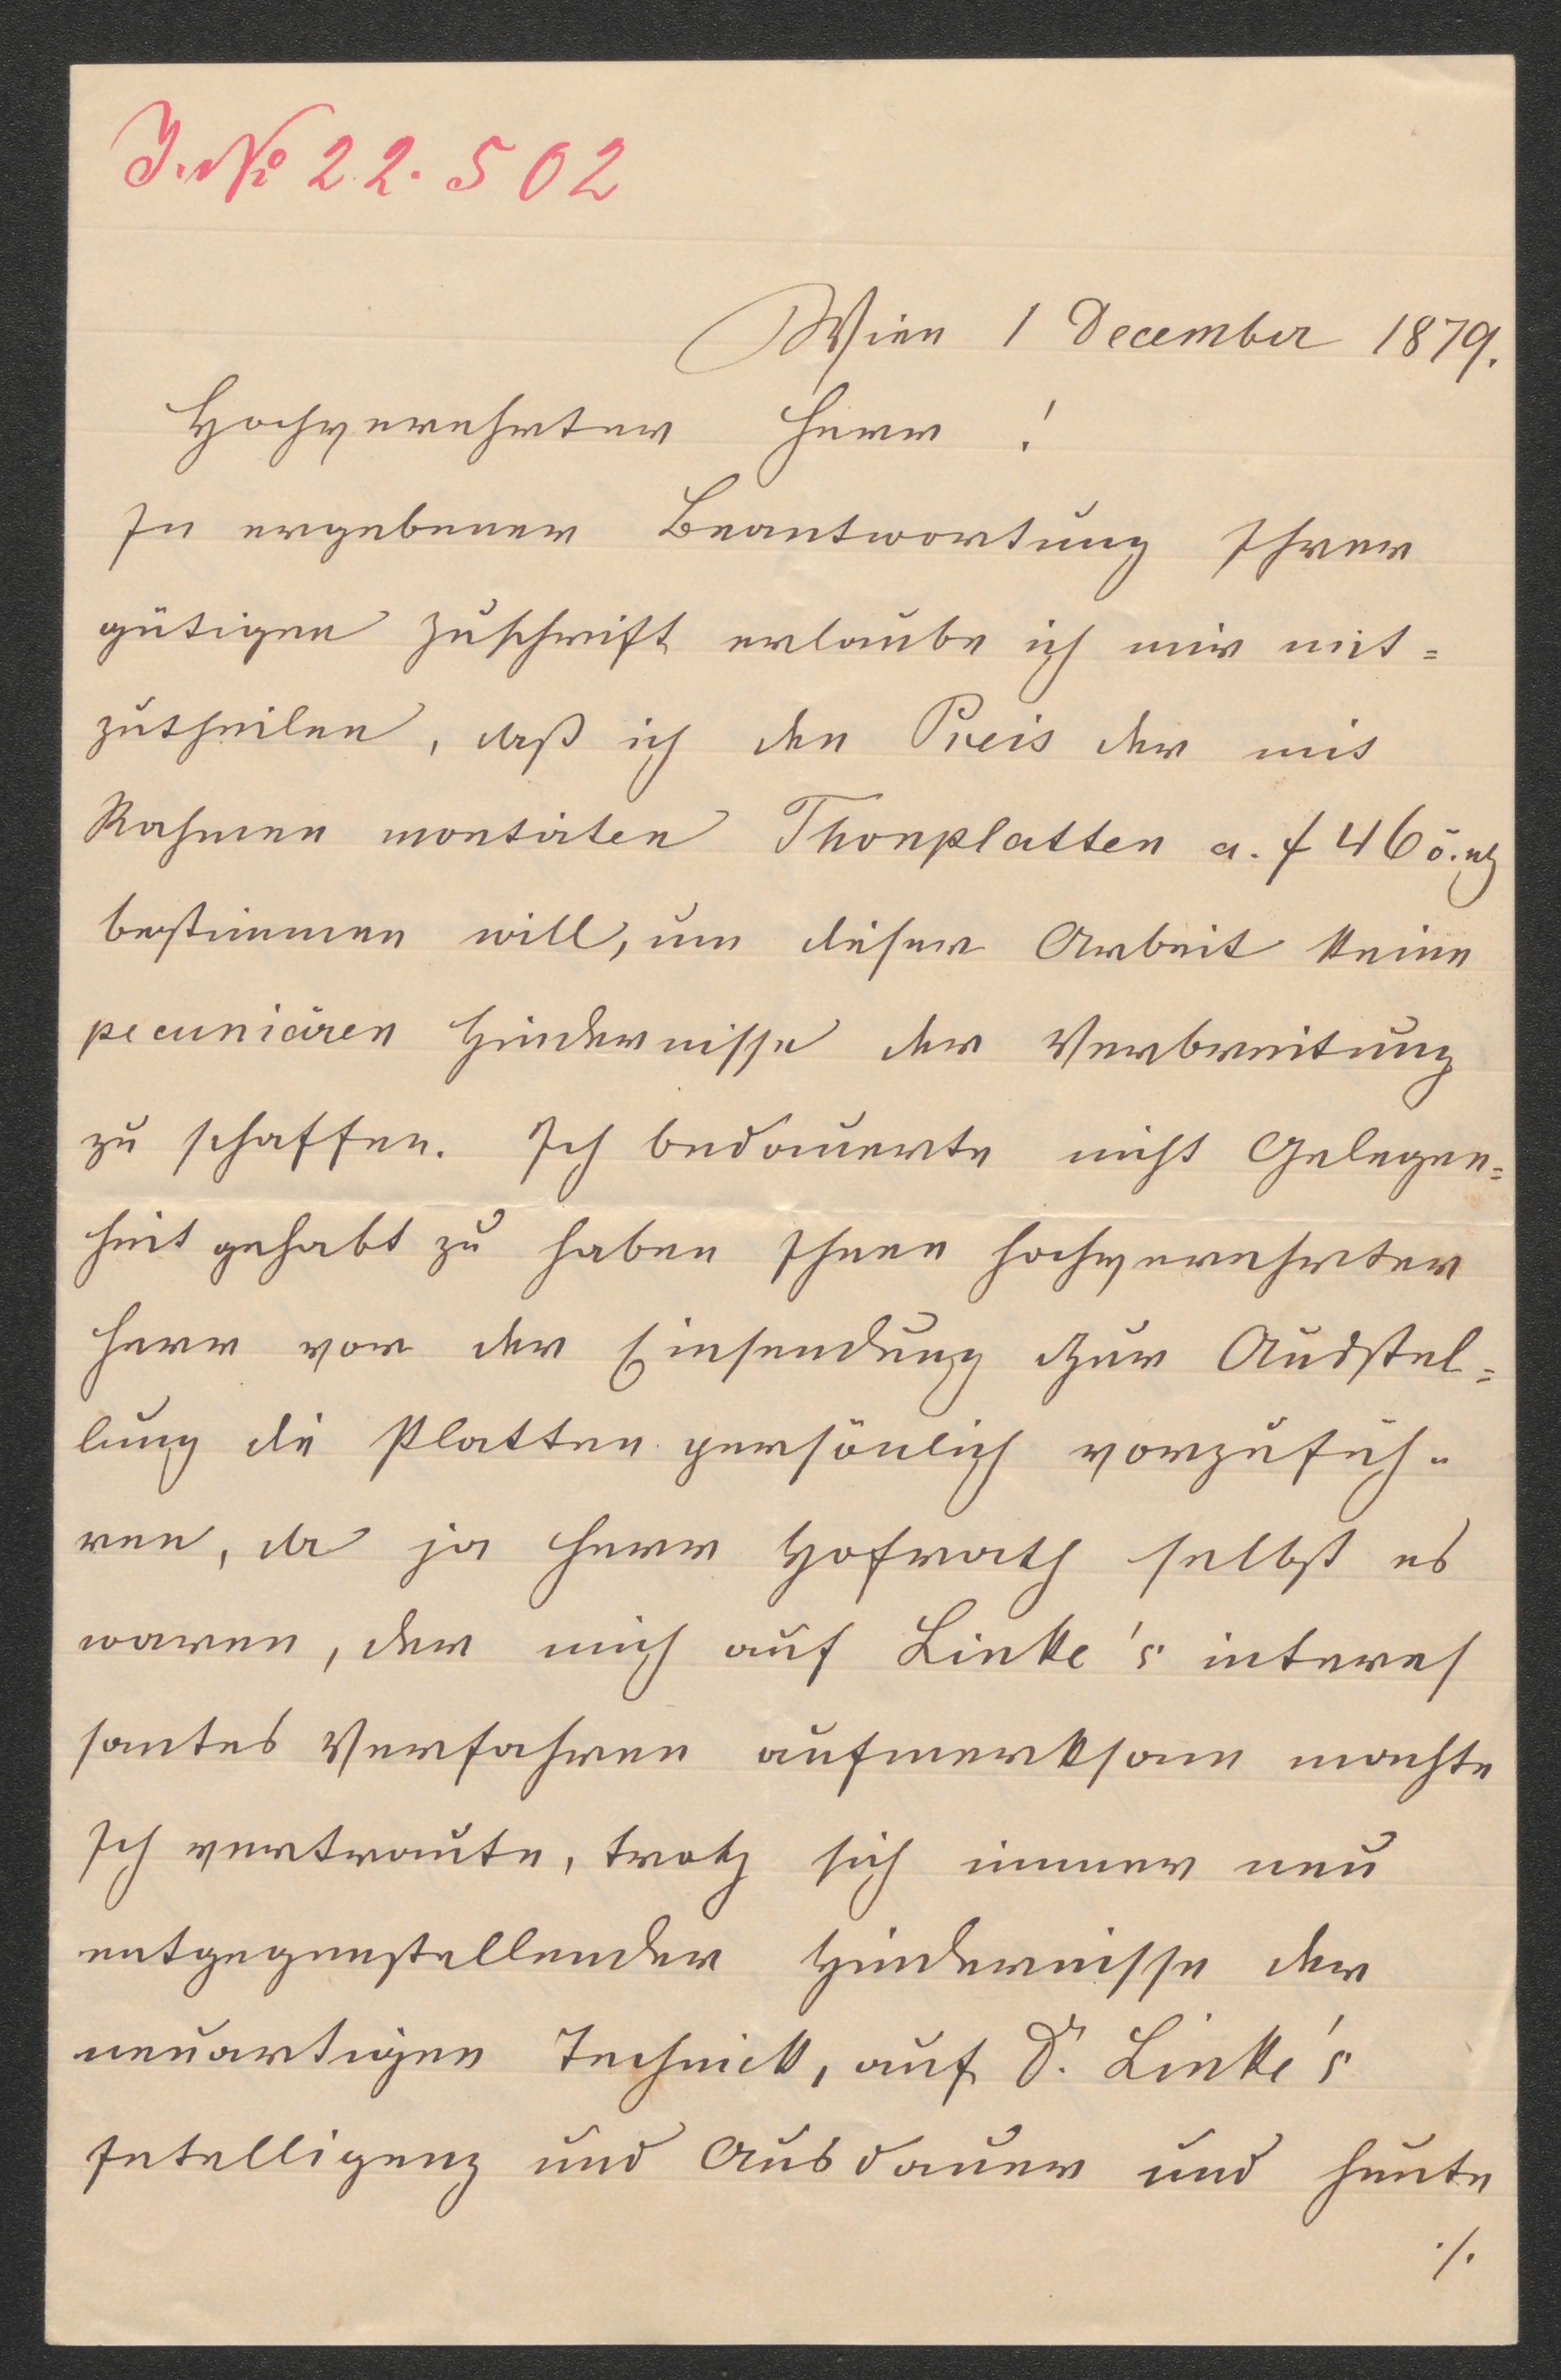 J. No 22.502
Wien 1 December 1879.
Hochverehrter Herr !
In ergebener Beantwortung Ihrer
gütigen Zuschrift erlaube ich mir mit=
zutheilen, daß ich den Preis der mit
Rahmen montirten Thonplatten a. f 46 ö.
bestimmen will, um dieser Arbeit keine
pecuniären Hindernisse der Verbreitung
zu schaffen. Ich bedauerte nicht Gelegen=
heit gehabt zu haben Ihnen hochverehrter
Herr vor der Einsendung zur Ausstel=
lung die Platten persönlich vorzufüh=
ren, da ja Herr Hofrath selbst es
waren, der mich auf Linke's interes
santes Verfahren aufmerksam machte
Ich vertraute, trotz sich immer neu
entgegenstellender Hindernisse der
neuartigen Technick, auf Dr. Linke's
Intelligenz und Ausdauer und heute
./.